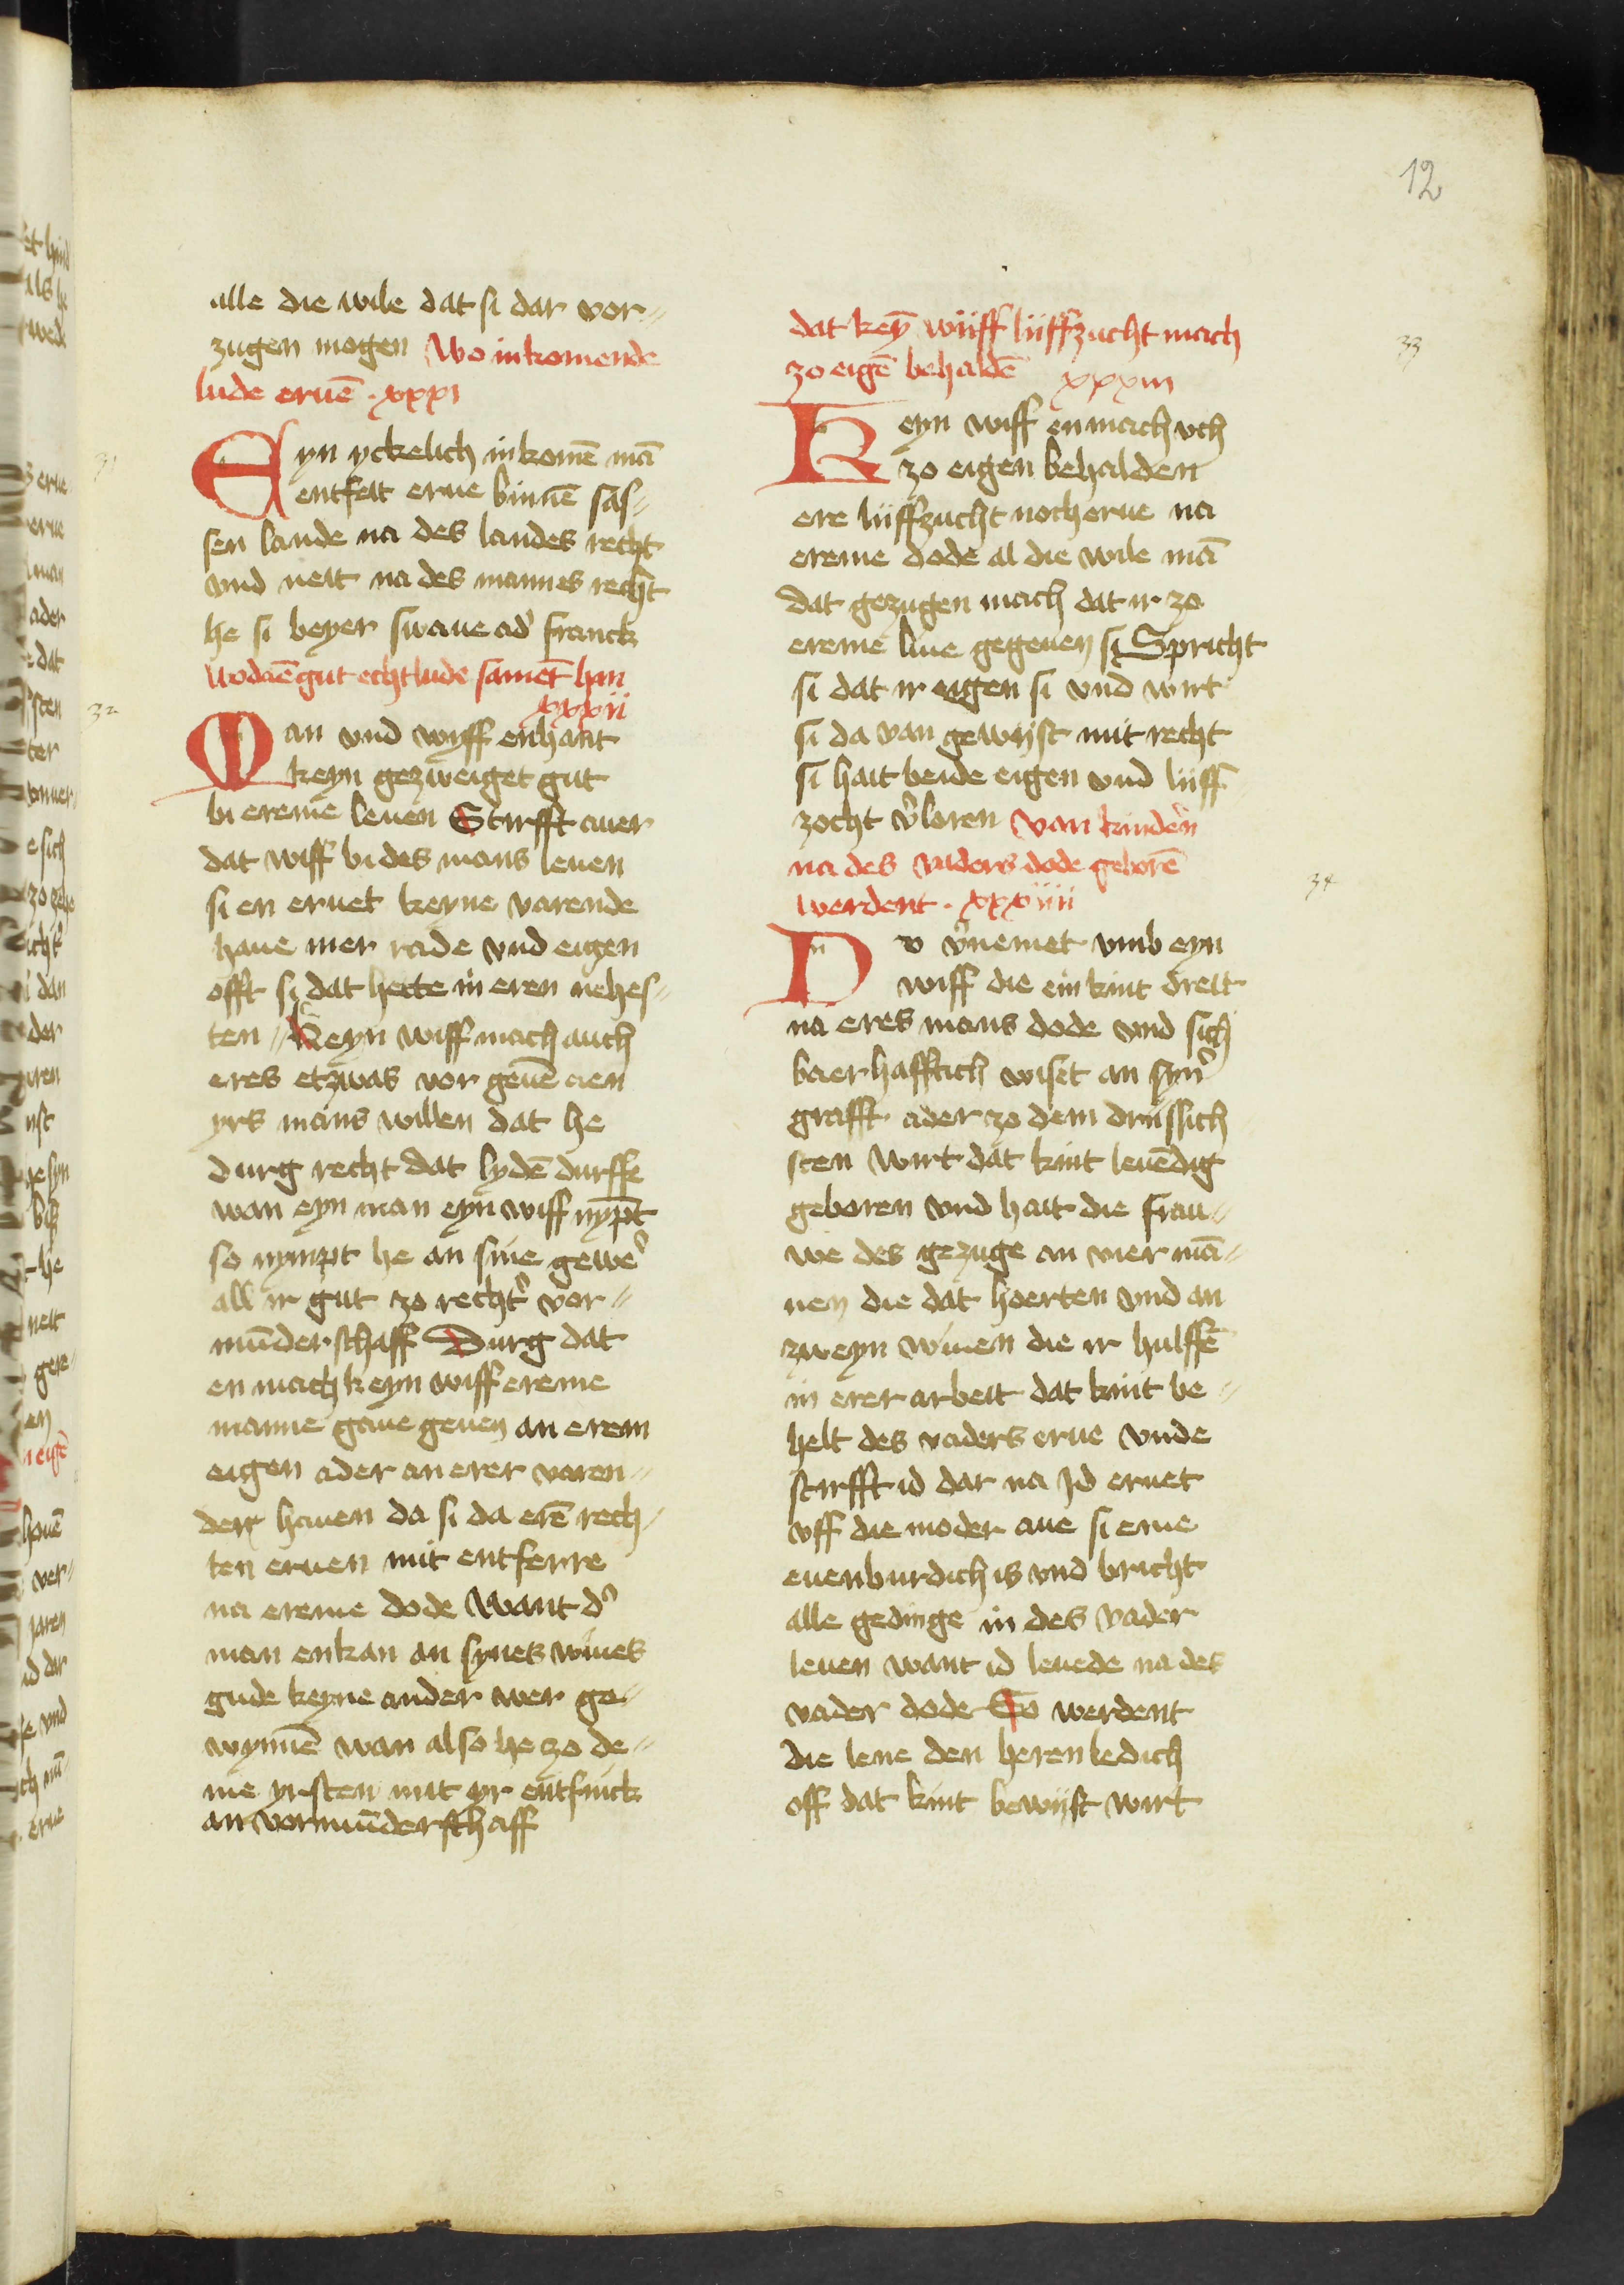 12
alle die wile dat si dar vor„
zugen mogen Wo inkomende
lude eruē . xxxi
31
Eyn yckelich inkomē mā
entfeit erue binnē sas„
sen lande na des landes recht
vnd neit na des mannes recht
he si beyer swaue ad' franck
Wodāē gut echtlude samēt han
xxxii
32
Man vnd wyff enhant
keyn gezweiget gut
bi ereme leuen Stirfft auer
dat wiff bi des mans leuen
si en eruet keyne varende
haue mer rade vnd eigen
offt si dat hette in eren nehes„
ten „ Keyn wiff mach auch
eres etzwas vor geuē aen
yrs mans willen dat he
durg recht dat lydē durffe
wan eyn man eyn wiff nypt
so nympt he an sine gewe'
all ir gut zo recht' vor„
mūderschaff Durg dat
en mach keyn wiff ereme
manne gaue geuen an erem
eigen ader an erer varen„
der hauen da si da erē rech„
ten eruen mit entferre
na ereme dode Want d'
man enkan an synes wiues
gude keyne ander wer ge„
wynnē wan also he zo de„
me yrsten mit yr entfinck
an vormūderschaff
dat keȳ wiiff liiffzucht mach
zo eigē behaldē xxxiii
33
Keyn wiff enmach vch
zo eigen behalden
ere liiffzucht noch erue na
ereme dode al die wile mā
dat gezugen mach dat ir zo
ereme liue gegeuen si Spricht
si dat ir eigen si vnd wirt
si da van gewijst mit recht
si hait beide eigen vnd liiff„
zocht v'loren Van kinder'n
na des vaders dode geborē
werdent . xxxiiii
34
Nv v'nemet vmb eyn
wiff die ein kint dreit
na eres mans dode vnd sich
baerhafftich wiset an syn'
grafft ader zo dem driissich
sten Wirt dat kint leuēdig
geboren vnd hait die frau„
we des gezuge an vier mā„
nen die dat hoerten vnd an
zweyn wiuen die ir hulffē
in erer arbeit dat kint be„
helt des vaders erue vnde
stirfft id dar na Id eruet
vff die moder aue si eme
euenburdich is vnd bricht
alle gedinge in des vader
leuen want id leuede na des
vader dode So werdent
die lene den heren ledich
off dat kint bewijst wirt